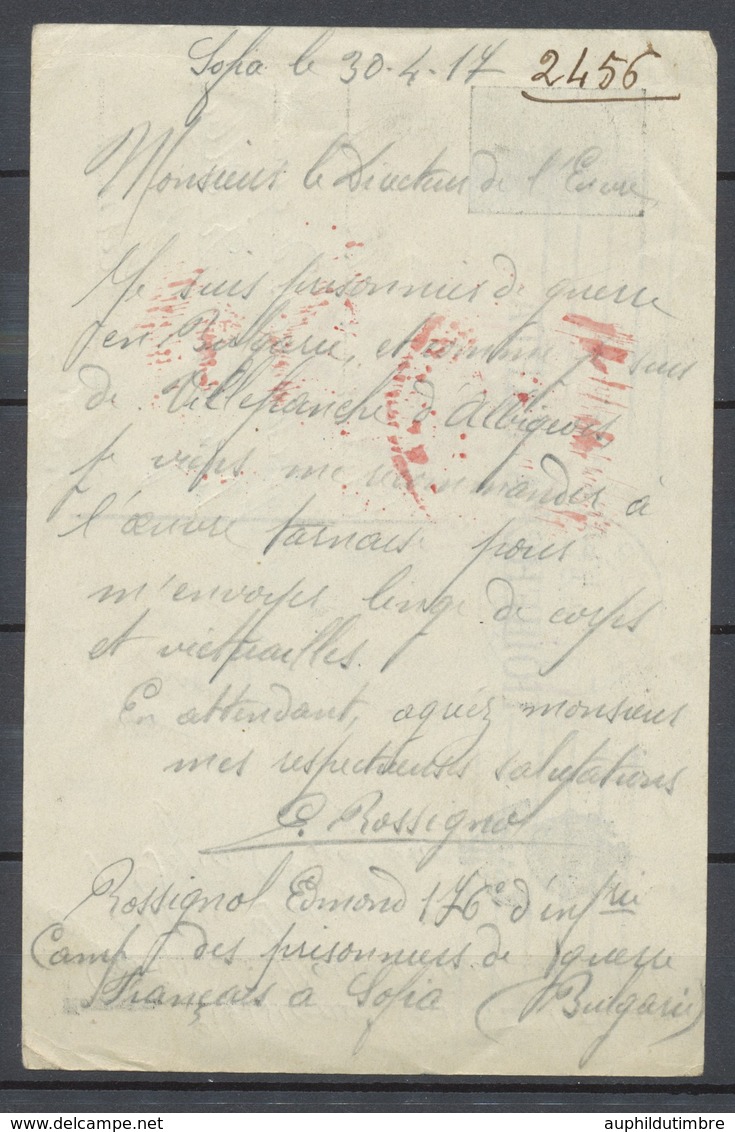 Sofia le 30-4-17 2456
Monsieur le Directeur de l'Œuvre,
Je suis prisonnier de guerre
en Bulgarie, et comme je suis
de Villefranche d'Albigeois
je viens me recommander à
l'œuvre tarnaise pour
m'envoyer linge de corps
et victuailles.
En attendant, agréez monsieur
mes respectueuses salutations
E. Rossignol
Rossignol Edmond 176e d'infrie
Camp des prisonniers de guerre
Français à Sofia (Bulgarie)
auphildutimbre